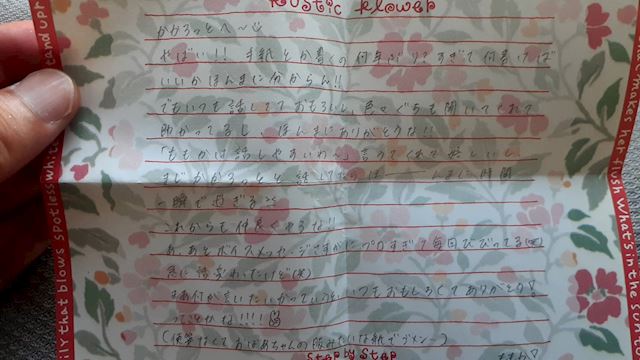 Rustic Flower
かかろっとへ〜
やばい!! 手紙とか書くの何年ぶり?すぎて何書けば
いいかほんまに分からん!!
でもいつも話してておもろいし、色々ぐちも聞いてくれて
助かってるし、ほんまにありがとうな!!
「ももかは話しやすいわ〜」言うてくれて嬉しいし、
まじかかろっとと話してたらほ――んまに時間
一瞬で過ぎる
これからも仲良くやろな!!
あ、あとボイスメッセージさすがにプロすぎて毎回びびってる(笑)
急に誘うわたいけど(笑)
まあ何が言いたいかっていうと、いつもおもしろくてありがとう!
ってことかな!!!!
(便箋なくておばあちゃんの飯みたいな紙でゴメン〜)
ももか♡
Step by Step
and up r
spotless whit
ily that blows
makes her flush
What's in the